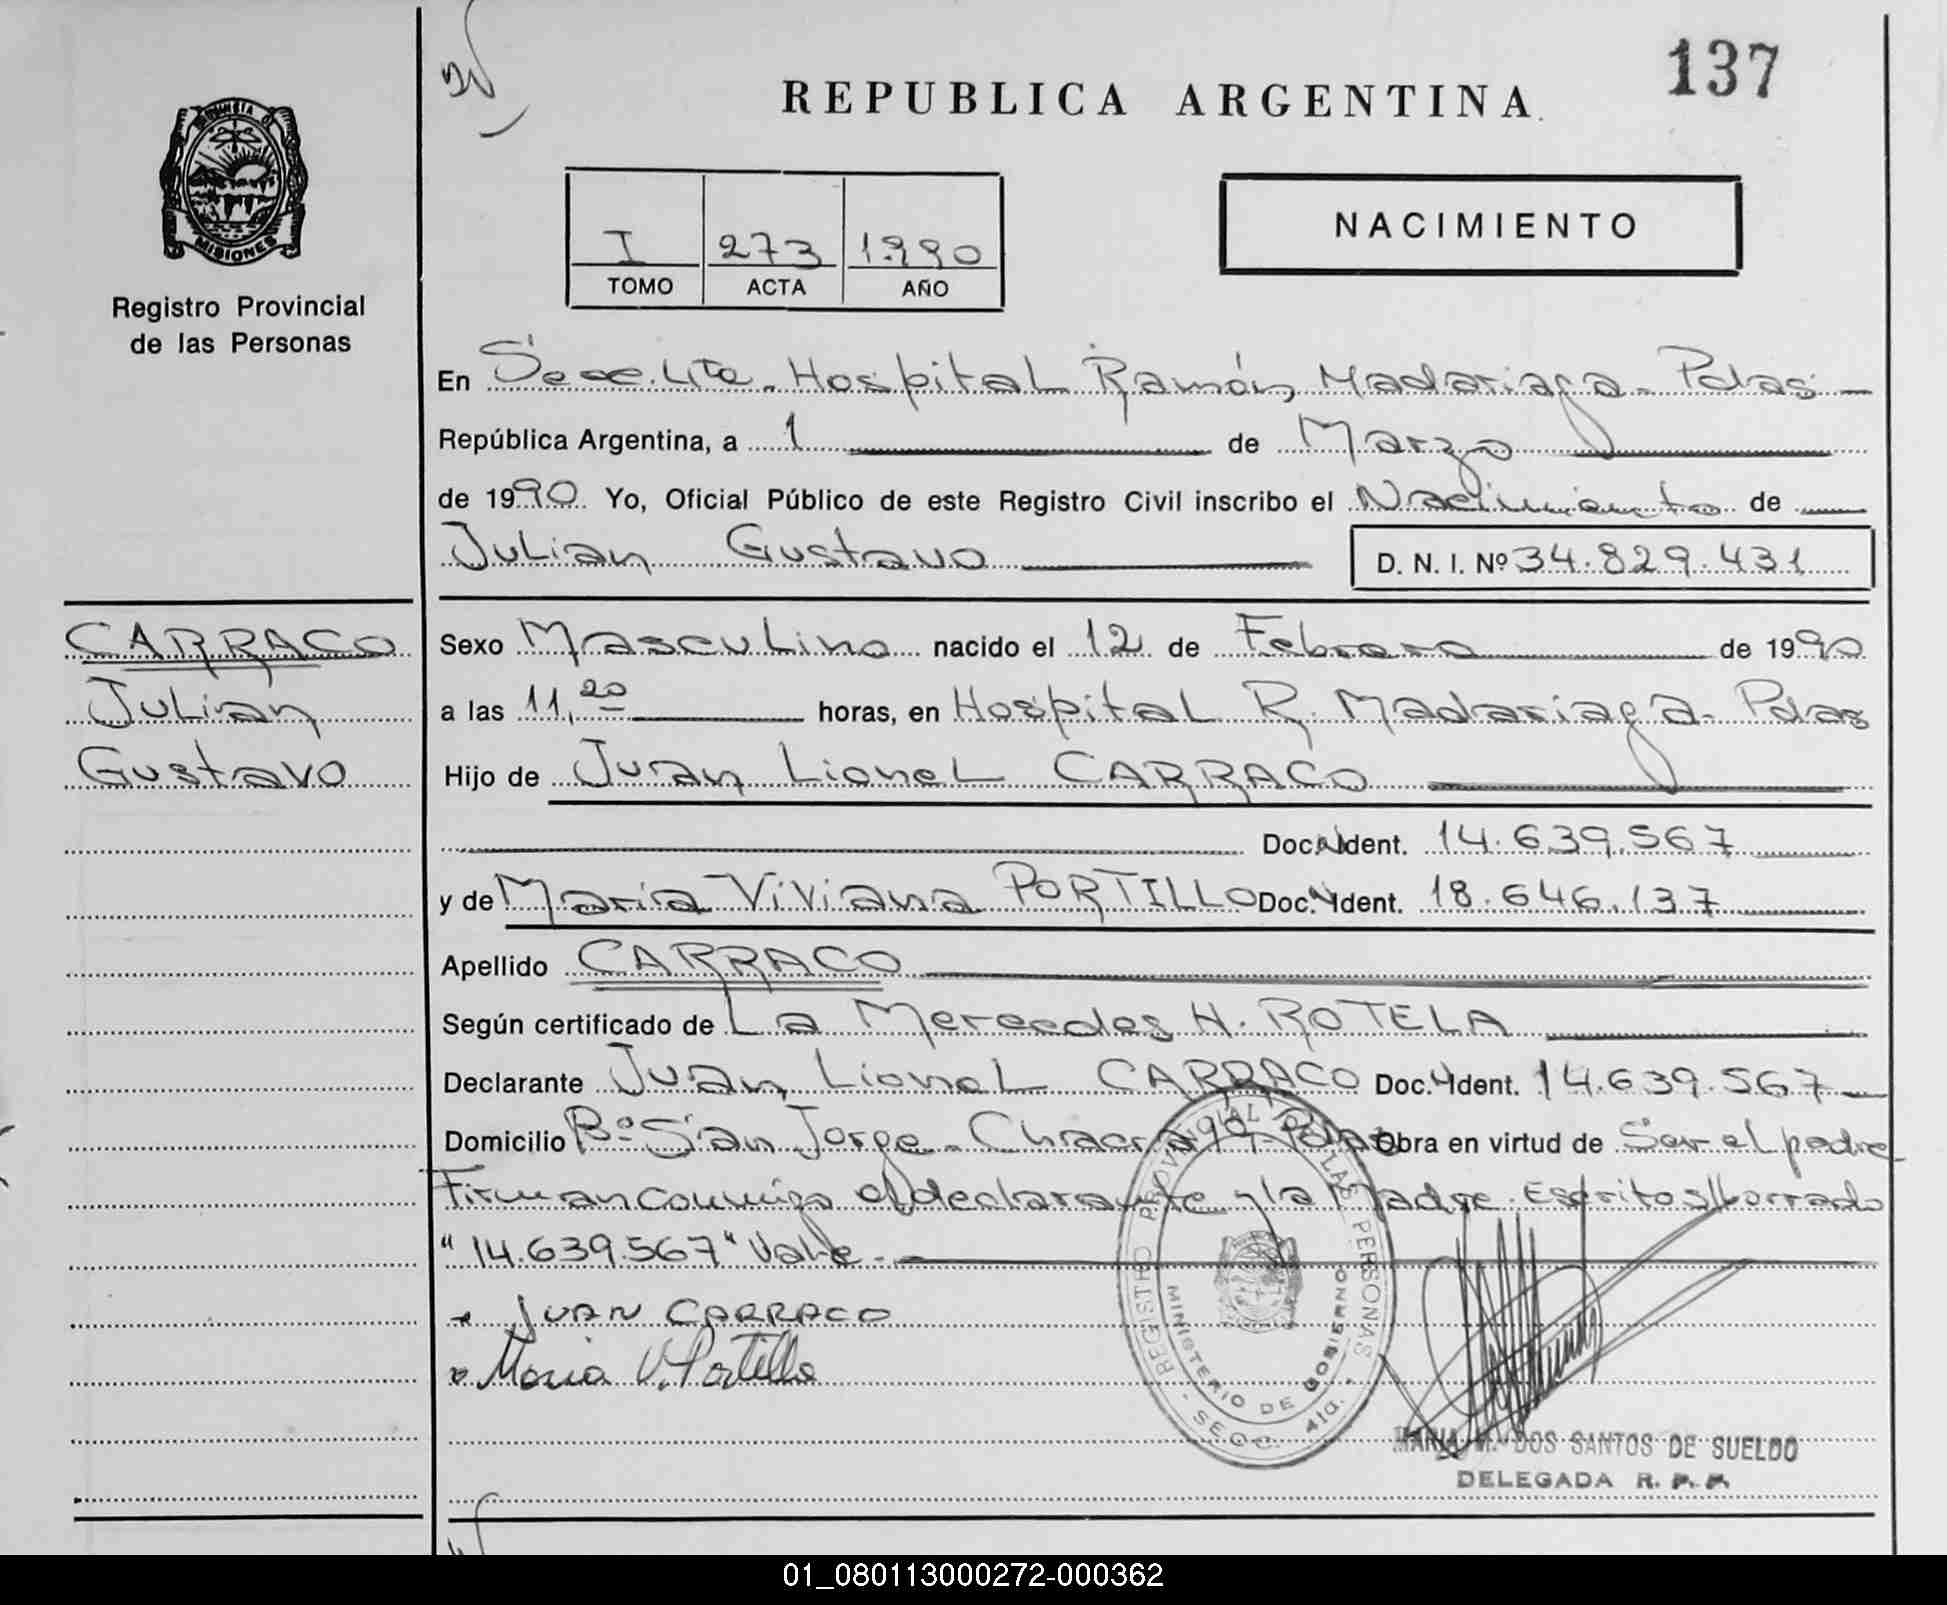 137
REPUBLICA ARGENTINA
PROVINCIA D
MISIONES
Registro Provincial
de las Personas
I 273 1.990
TOMO ACTA AÑO
NACIMIENTO
En Secc. 4ta. Hospital Ramón Madariaga - Pdas -
República Argentina, a 1 de Marzo
de 1990 Yo, Oficial Público de este Registro Civil inscribo el Nacimiento de
Julian Gustavo D. N. I. Nº 34.829.431
CARRACO
Julian
Gustavo
Sexo Masculino nacido el 12 de Febrero de 1990
a las 11,20 horas, en Hospital R. Madariaga - Pdas
Hijo de Juan Lionel CARRACO
Doc. N Ident. 14.639.567
y de Maria Viviana PORTILLO Doc. N Ident. 18.646.137
Apellido CARRACO
Según certificado de La Mercedes H. ROTELA
Declarante Juan Lionel CARRACO Doc. Ident. 14.639.567
Domicilio Bº San Jorge - Chacra Pdas Obra en virtud de Ser el padre
Firman conmigo el declarante y la Madre. Escrito s/borrado
"14.639.567" Vale.-
JUAN CARRACO
Maria V. Portillo
REGISTRO PROVINCIAL DE LAS PERSONAS
MINISTERIO DE GOBIERNO
- SECC. 4ta. -
MARIA M. DOS SANTOS DE SUELDO
DELEGADA R. P. P.
01_080113000272-000362